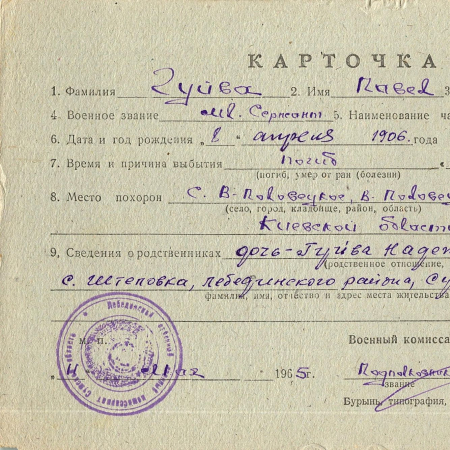 КАРТОЧКА
1. Фамилия Гуйва 2. Имя Павел 3
4. Военное звание мл. Сержант 5. Наименование ча
6. Дата и год рождения „8" апреля 1906. года
7. Время и причина выбытия Погиб
(погиб, умер от ран (болезни)
8. Место похорон С. В-Половецкое, В-Половец
(село, город, кладбище, район, область)
Киевской област
9. Сведения о родственниках дочь-Гуйва Надеж
(родственное отношение,
с. Штеповка, Лебединского района, Су
фамилия, имя, отчество и адрес места жительства
м. п. Военный комисса
мая 1965г. Подполковник
звание
Бурынь, типография,